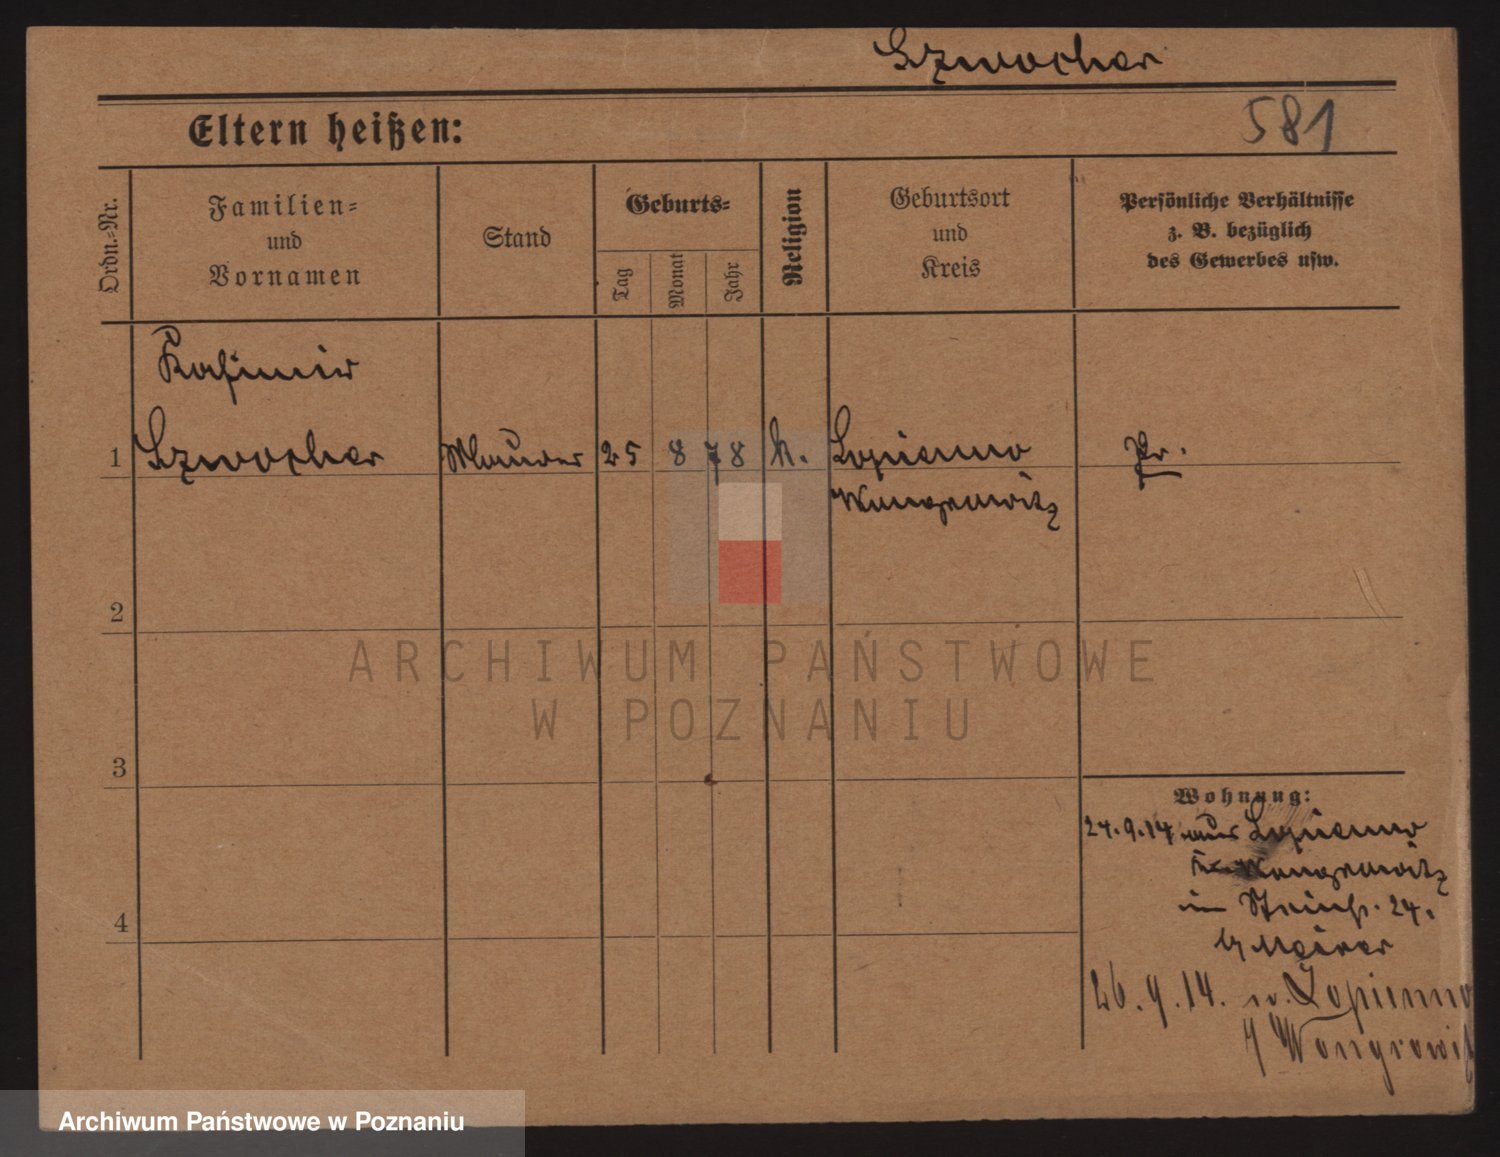 Szwocher
581
Eltern heißen:
Ordn.-Nr.
Familien-
und
Vornamen
Stand
Geburts-
Tag
Monat
Jahr
Religion
Geburtsort
und
Kreis
Persönliche Verhältnisse
z. B. bezüglich
des Gewerbes usw.
Kasimir
1 Szwocher Maurer 25 8 78 k. Lopienno Pr.
Wongrowitz
2
3
4
Wohnung:
24.9.14 aus Lopienno
Wongrowitz
im Steinst. 24.
26.9.14. Lopienno
Wongrowitz
ARCHIWUM PAŃSTWOWE
W POZNANIU
Archiwum Państwowe w Poznaniu